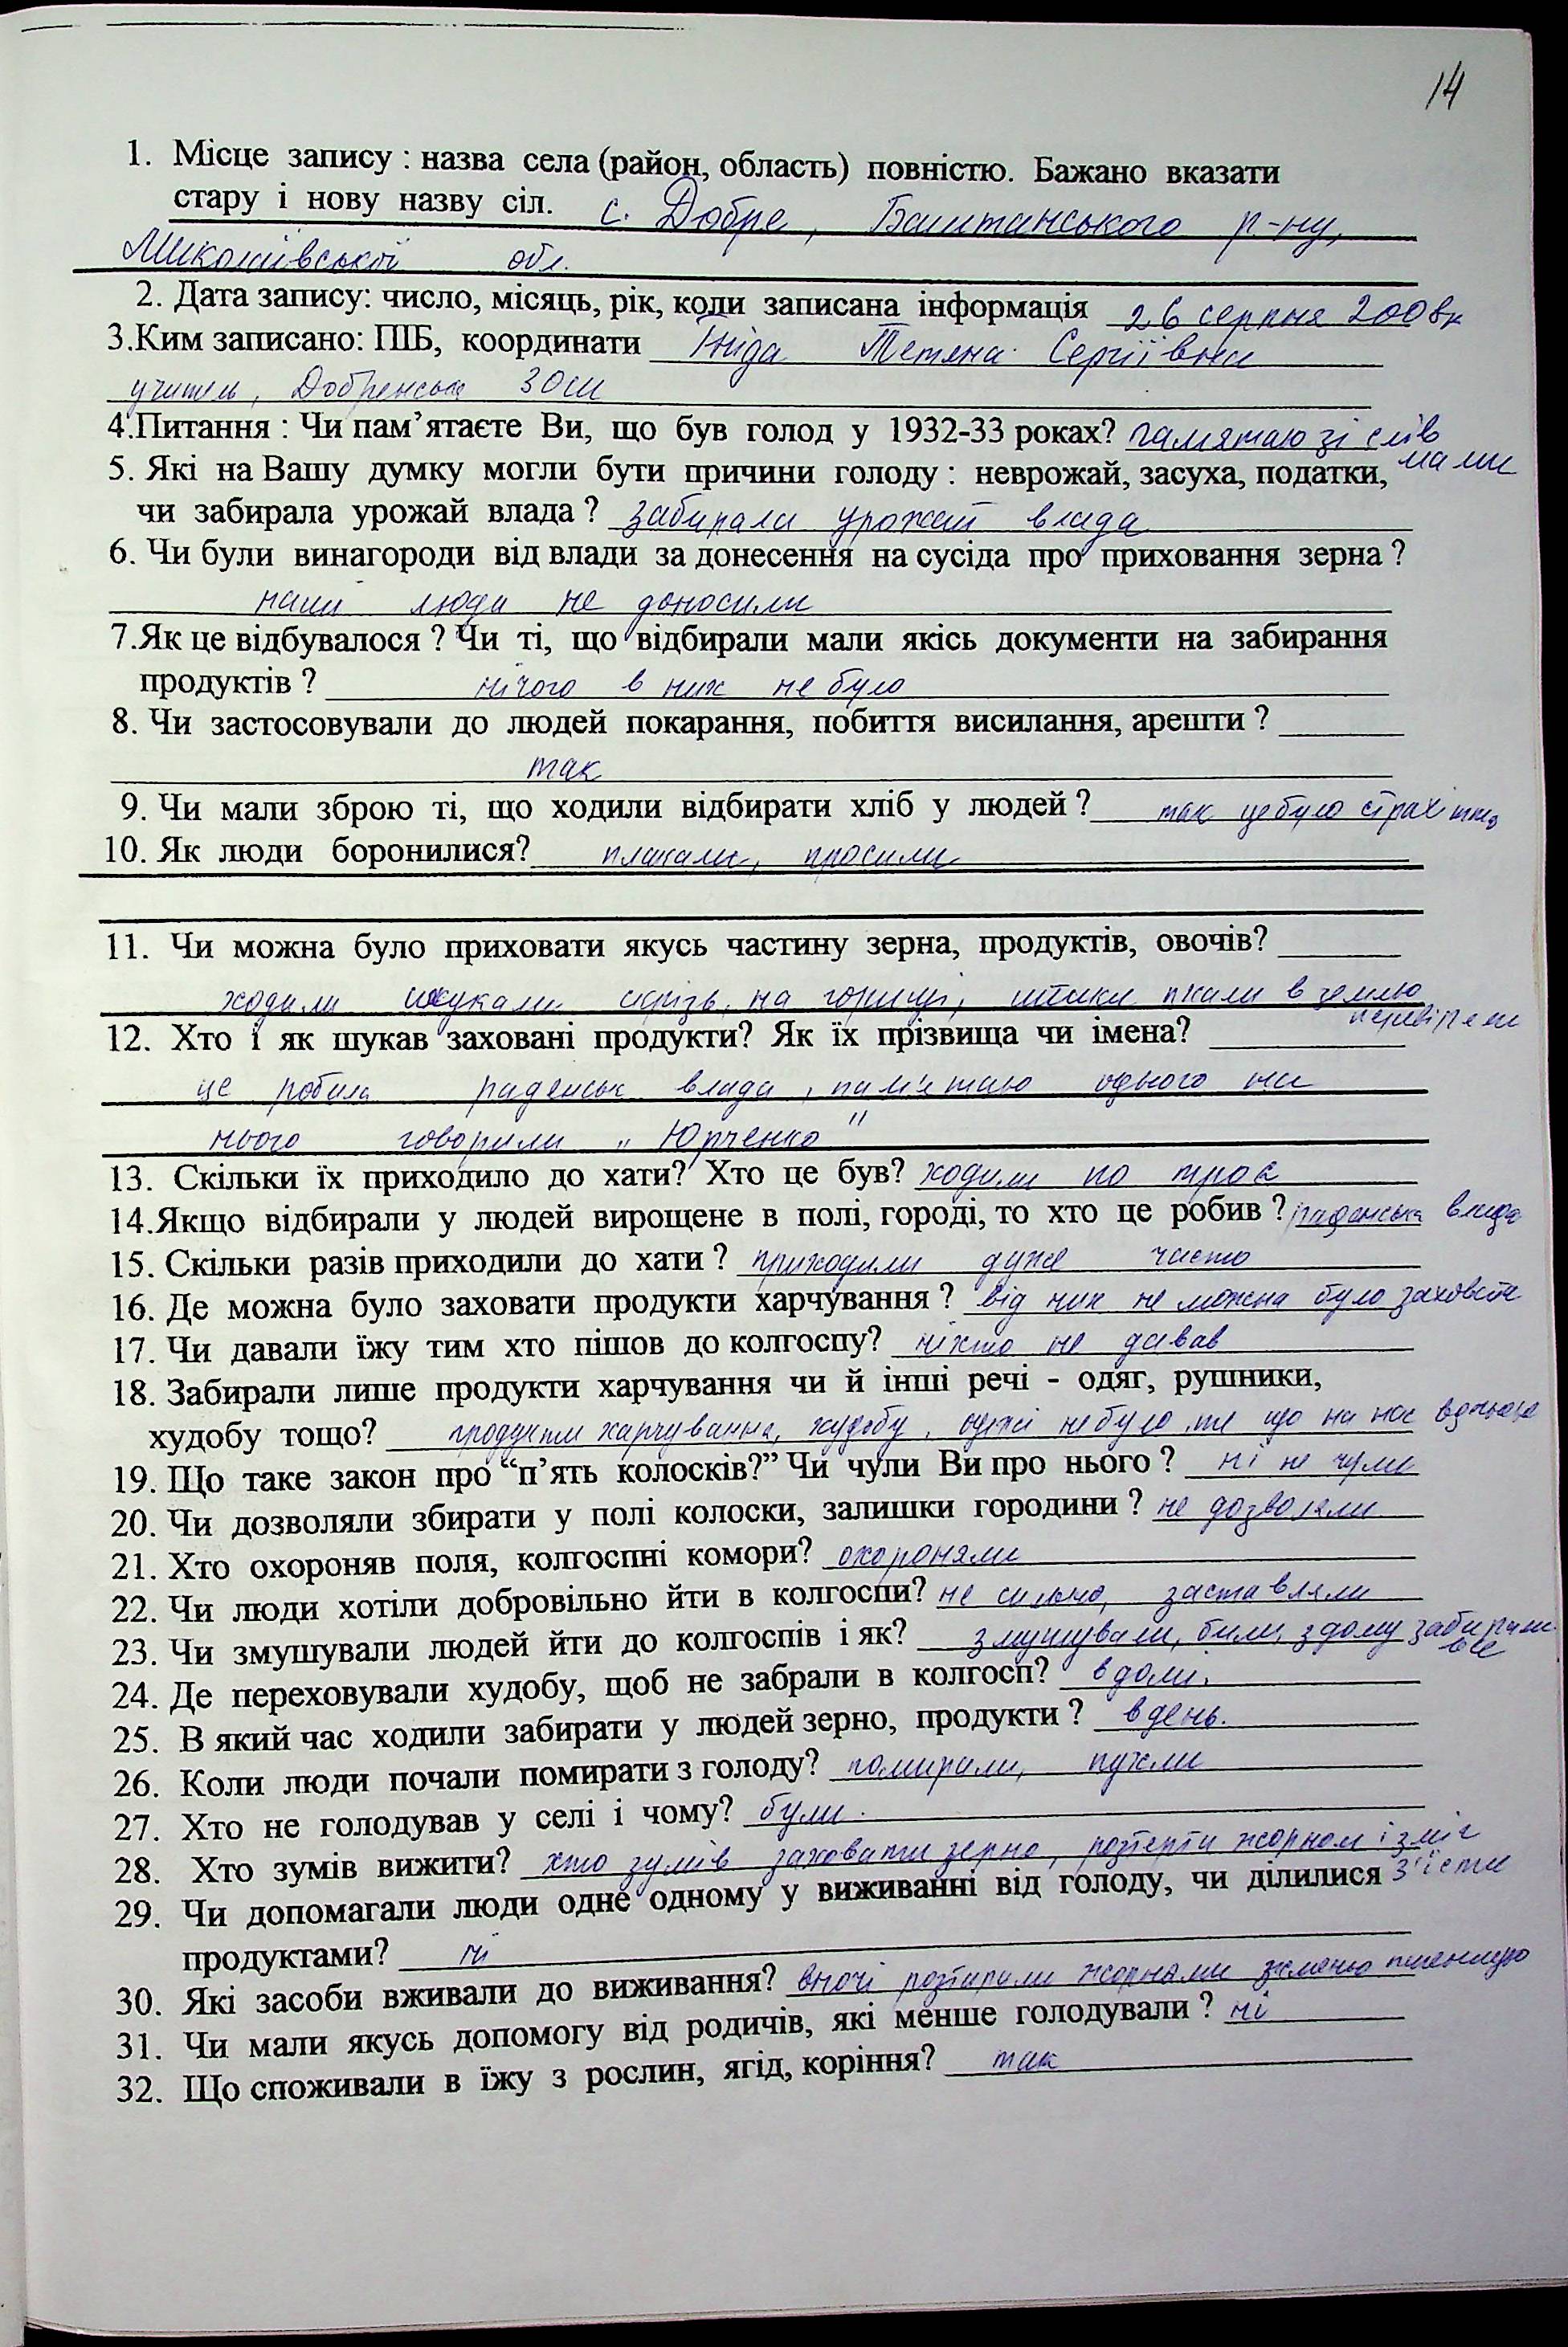 14
1. Місце запису : назва села (район, область) повністю. Бажано вказати
стару і нову назву сіл. с. Добре, Баштанського р-ну,
Миколаївської обл.
2. Дата запису: число, місяць, рік, коли записана інформація 26 серпня 2008р
3.Ким записано: ПІБ, координати Тетяна Сергіївна
учитель, Добренська ЗОШ
4.Питання : Чи пам’ятаєте Ви, що був голод у 1932-33 роках? памятаю зі слів
мами
5. Які на Вашу думку могли бути причини голоду : неврожай, засуха, податки,
чи забирала урожай влада ? забирала урожай влада
6. Чи були винагороди від влади за донесення на сусіда про приховання зерна ?
наші люди не доносили
7.Як це відбувалося ? Чи ті, що відбирали мали якісь документи на забирання
продуктів ? нічого в них не було
8. Чи застосовували до людей покарання, побиття висилання, арешти ?
так
9. Чи мали зброю ті, що ходили відбирати хліб у людей ? так це було страхітно
10. Як люди боронилися? плакали, просили
11. Чи можна було приховати якусь частину зерна, продуктів, овочів?
ходили шукали скрізь, на горищі, штики пхали в землю
перевіряли
12. Хто і як шукав заховані продукти? Як їх прізвища чи імена?
це робила радянськ влада, пам'ятаю одного на
нього говорили „Юрченко"
13. Скільки їх приходило до хати? Хто це був? ходили по троє
14.Якщо відбирали у людей вирощене в полі, городі, то хто це робив ? радянська влада
15. Скільки разів приходили до хати ? приходили дуже часто
16. Де можна було заховати продукти харчування ? від них не можна було заховати
17. Чи давали їжу тим хто пішов до колгоспу? ніхто не давав
18. Забирали лише продукти харчування чи й інші речі - одяг, рушники,
худобу тощо? продукти харчування, худобу, одежі не було те що на нас
19. Що таке закон про “п’ять колосків?” Чи чули Ви про нього ? ні не чули
20. Чи дозволяли збирати у полі колоски, залишки городини ? не дозволяли
21. Хто охороняв поля, колгоспні комори? охороняли
22. Чи люди хотіли добровільно йти в колгоспи? не сильно, заставляли
23. Чи змушували людей йти до колгоспів і як? змушували, били, з дому забирали
все
24. Де переховували худобу, щоб не забрали в колгосп? вдома.
25. В який час ходили забирати у людей зерно, продукти ? вдень.
26. Коли люди почали помирати з голоду? помирали, пухли
27. Хто не голодував у селі і чому? були.
28. Хто зумів вижити? хто зумів заховати зерно, розтерти жорном і зміг
з'їсти
29. Чи допомагали люди одне одному у виживанні від голоду, чи ділилися
продуктами? ні
30. Які засоби вживали до виживання? вночі розтирали жорнами жменю пшениці
31. Чи мали якусь допомогу від родичів, які менше голодували ? ні
32. Що споживали в їжу з рослин, ягід, коріння? так